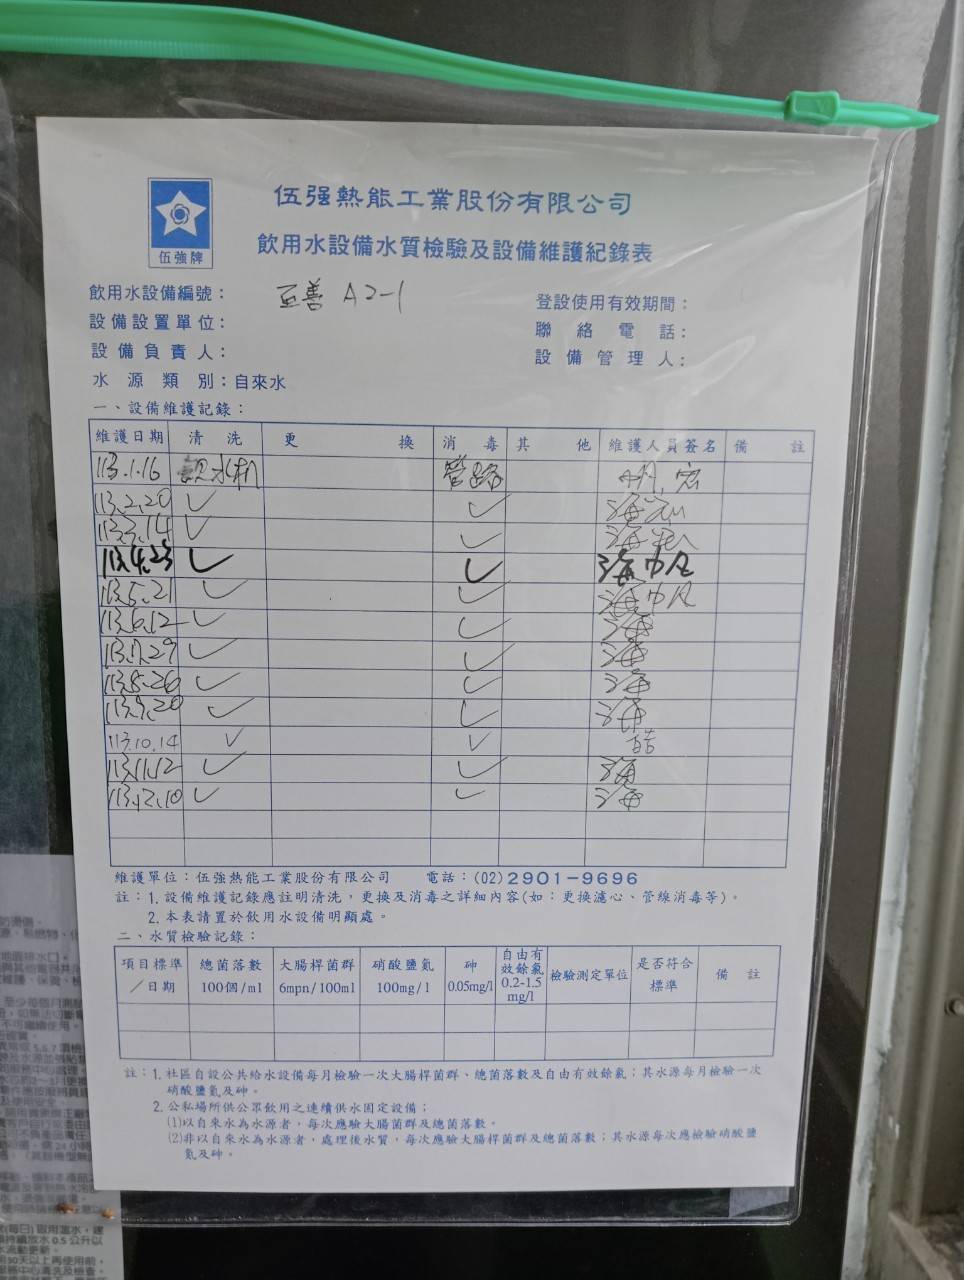 伍強牌
伍強熱能工業股份有限公司
飲用水設備水質檢驗及設備維護紀錄表
飲用水設備編號： 至善 A2-1
登設使用有效期間：
設備設置單位：
聯絡電話：
設備負責人：
設備管理人：
水源類別：自來水
一、設備維護記錄：
維護日期 清洗 更換 消毒 其他 維護人員簽名 備註
113.1.16 飲水机 管路
113.2.20 ✓ ✓
113.3.14 ✓ ✓
113.4.23 ✓ ✓ 海帆
113.5.21 ✓ ✓ 海帆
113.6.12 ✓ ✓ 海
113.7.29 ✓ ✓ 海
113.8.26 ✓ ✓ 海
113.9.20 ✓ ✓ 海
113.10.14 ✓ ✓
113.11.12 ✓ ✓ 海
113.12.10 ✓ ✓ 海
維護單位：伍強熱能工業股份有限公司 電話：(02)2901-9696
註：1.設備維護記錄應註明清洗，更換及消毒之詳細內容(如：更換濾心、管線消毒等)。
2.本表請置於飲用水設備明顯處。
二、水質檢驗記錄：
項目標準／日期 總菌落數 100個/ml 大腸桿菌群 6mpn/100ml 硝酸鹽氮 100mg/l 砷 0.05mg/l 自由有效餘氯 0.2-1.5 mg/l 檢驗測定單位 是否符合標準 備註
註：1.社區自設公共給水設備每月檢驗一次大腸桿菌群、總菌落數及自由有效餘氯；其水源每月檢驗一次
硝酸鹽氮及砷。
2.公私場所供公眾飲用之連續供水固定設備；
(1)以自來水為水源者，每次應驗大腸菌群及總菌落數。
(2)非以自來水為水源者，處理後水質，每次應驗大腸桿菌群及總菌落數；其水源每次應檢驗硝酸鹽
氮及砷。